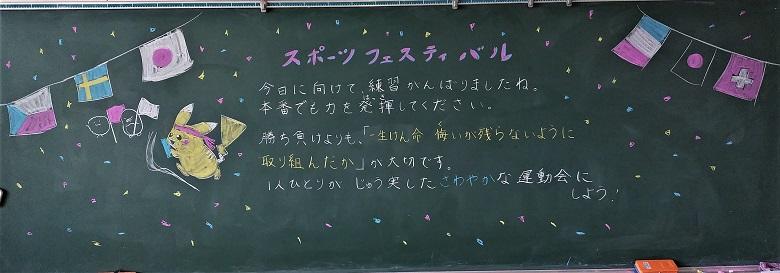 スポーツフェスティバル
今日に向けて、練習がんばりましたね。
本番でも力を発揮してください。
勝ち負けよりも、「一生けん命 悔いが残らないように
取り組んだか」が大切です。
1人ひとりが じゅう実した さわやかな運動会に
しよう!